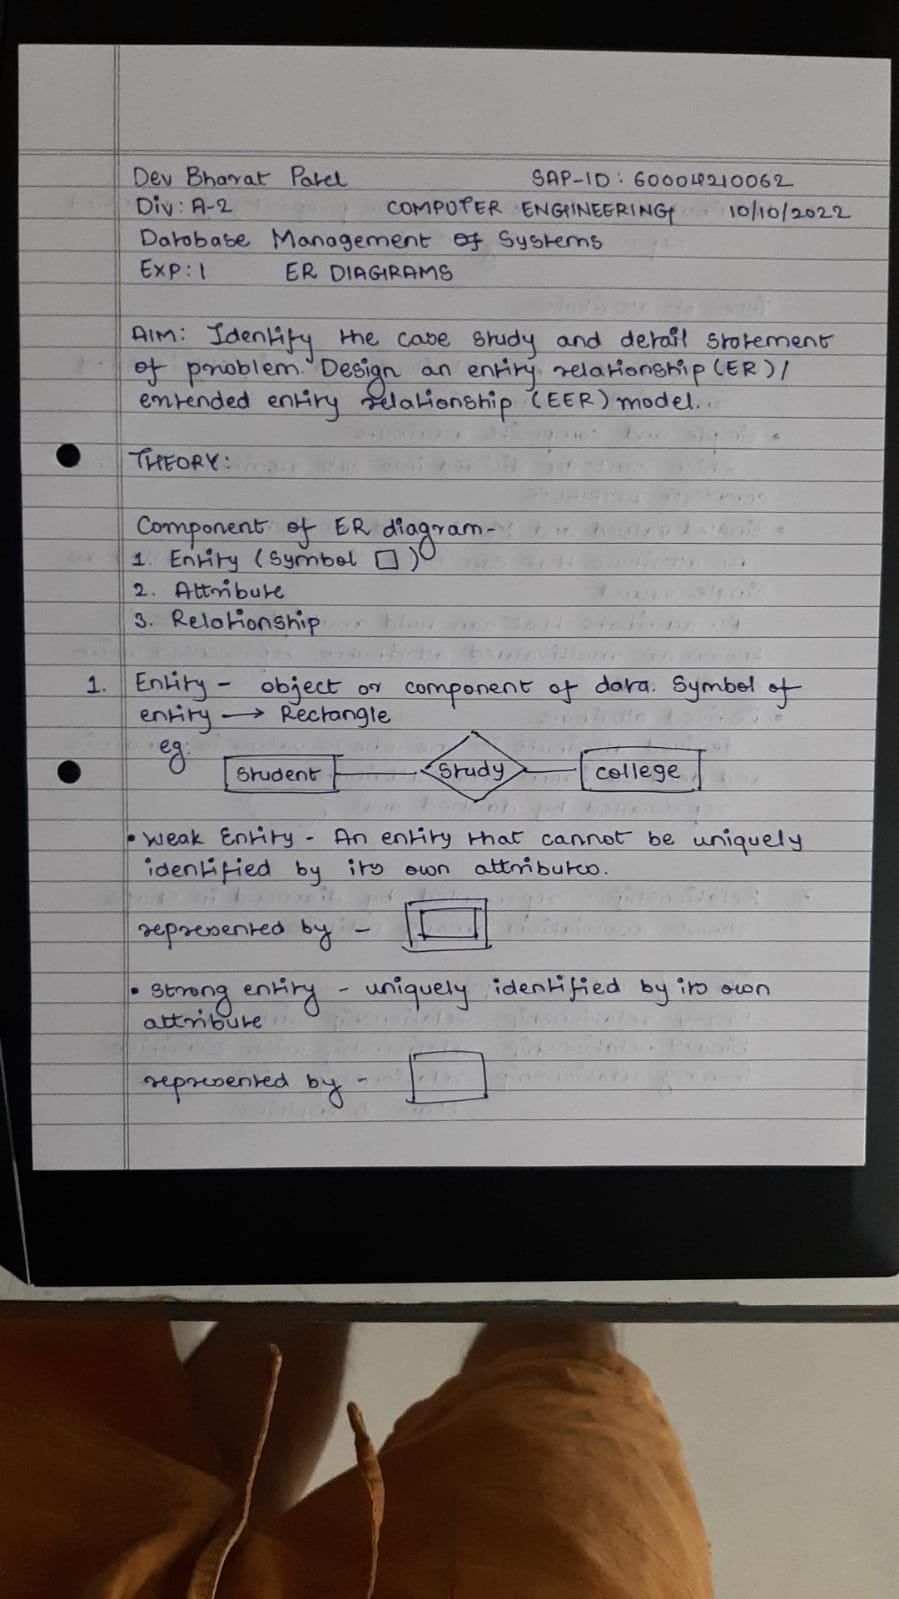 Dev Bharat Patel SAP-ID: 60004210062
Div: A-2 COMPUTER ENGINEERING 10/10/2022
Database Management of Systems
Exp: 1 ER DIAGRAMS
AIM: Identify the case study and detail statement
of problem. Design an entity relationship (ER) /
extended entity relationship (EER) model.
THEORY:
Component of ER diagram-
1. Entity (Symbol □)
2. Attribute
3. Relationship
1. Entity - object or component of data. Symbol of
entity → Rectangle
eg:
Student Study College
• Weak Entity - An entity that cannot be uniquely
identified by its own attributes.
represented by -
• Strong entity - uniquely identified by its own
attribute
represented by -